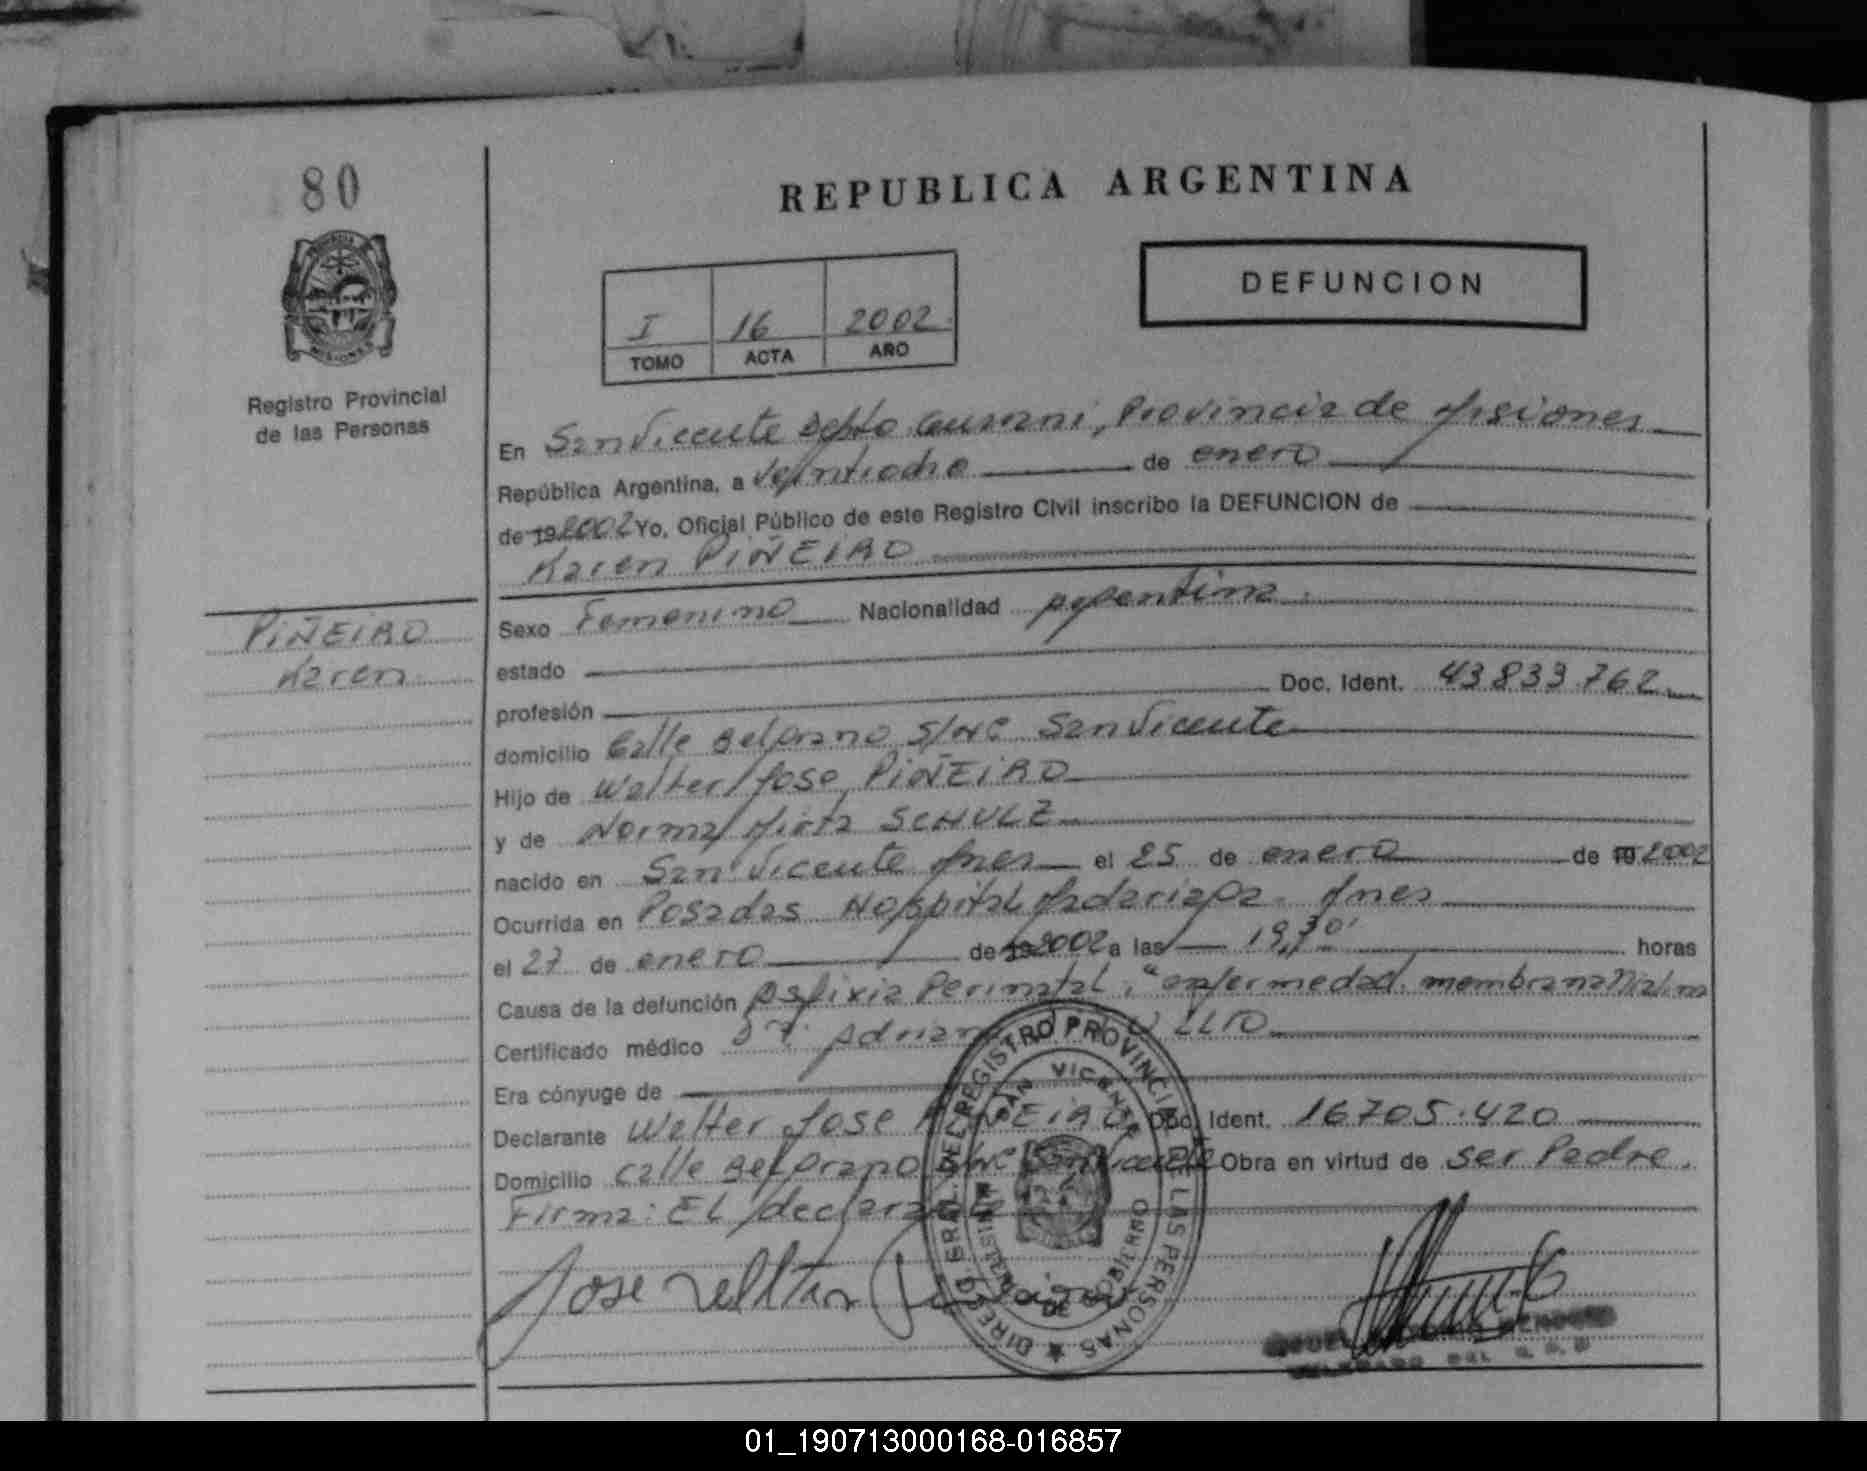 80
REPUBLICA ARGENTINA
DEFUNCION
I 16 2002
TOMO ACTA AÑO
Registro Provincial
de las Personas
En San Vicente Depto Guarani, Provincia de Misiones
República Argentina, a veintiocho de enero
de 19 2002 Yo, Oficial Público de este Registro Civil inscribo la DEFUNCION de
Karen PIÑEIRO
PIÑEIRO
Karen
Sexo Femenino Nacionalidad argentina
estado
profesión Doc. Ident. 43.833.762
domicilio Calle Belgrano S/Nº San Vicente
Hijo de Walter Jose PIÑEIRO
y de Norma Mirta SCHULZ
nacido en San Vicente Mnes el 25 de enero de 19 2002
Ocurrida en Posadas Hospital Madariaga Mnes
el 27 de enero de 19 2002 a las 19,30' horas
Causa de la defunción Asfixia Perinatal, "enfermedad membrana Hialina
Certificado médico Dr. Adrian
Era cónyuge de
Declarante Walter Jose PIÑEIRO Doc. Ident. 16.705.420
Domicilio calle Belgrano S/Nº San Vicente Obra en virtud de ser Padre.
Firma: EL declarante
Jose Walter
DIREC. GRAL. DEL REGISTRO PROVINCIAL DE LAS PERSONAS
SAN VICENTE
MINISTERIO DE GOBIERNO
01_190713000168-016857